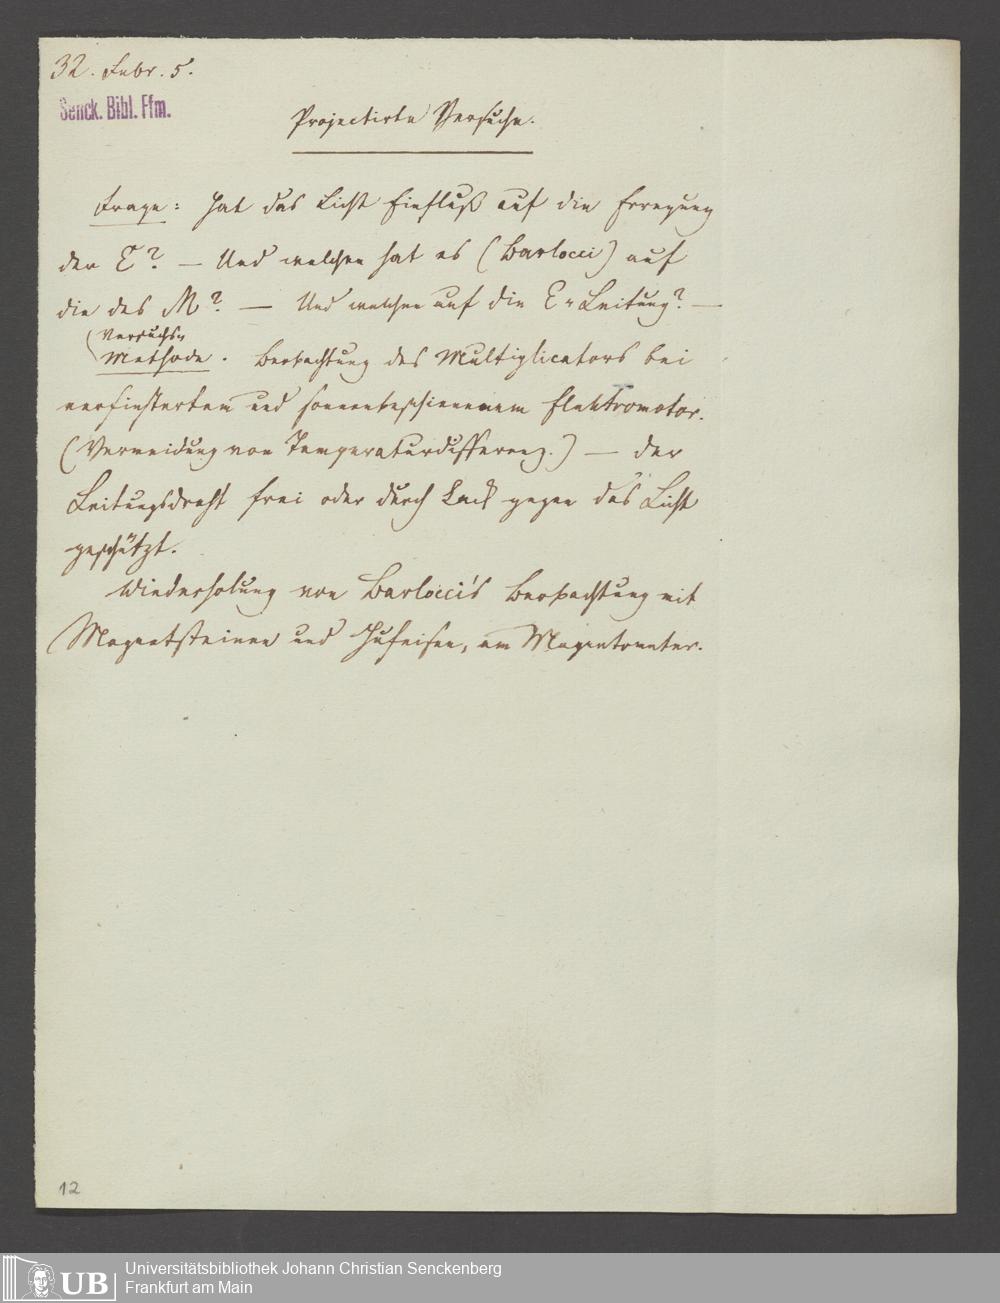 32. Febr. 5.
Senck. Bibl. Ffm.
Projectirte Versuche.
Frage: Hat das Licht Einfluß auf die Erregung
der E? — Und welchen hat es (Barlocci) auf
die des M? — Und welchen auf die E=Leitung? —
(Versuchs=
Methode. Beobachtung des Multiplicators bei
verfinstertem und sonnenbeschienenem Elektromotor.
(Vermeidung von Temperaturdifferenz.) — der
Leitungsdraht frei oder durch Lack gegen das Licht
geschützt.
Wiederholung von Barlocci's Beobachtung mit
Magnetsteinen und Hufeisen, am Magnetometer.
12
UB
Universitätsbibliothek Johann Christian Senckenberg
Frankfurt am Main